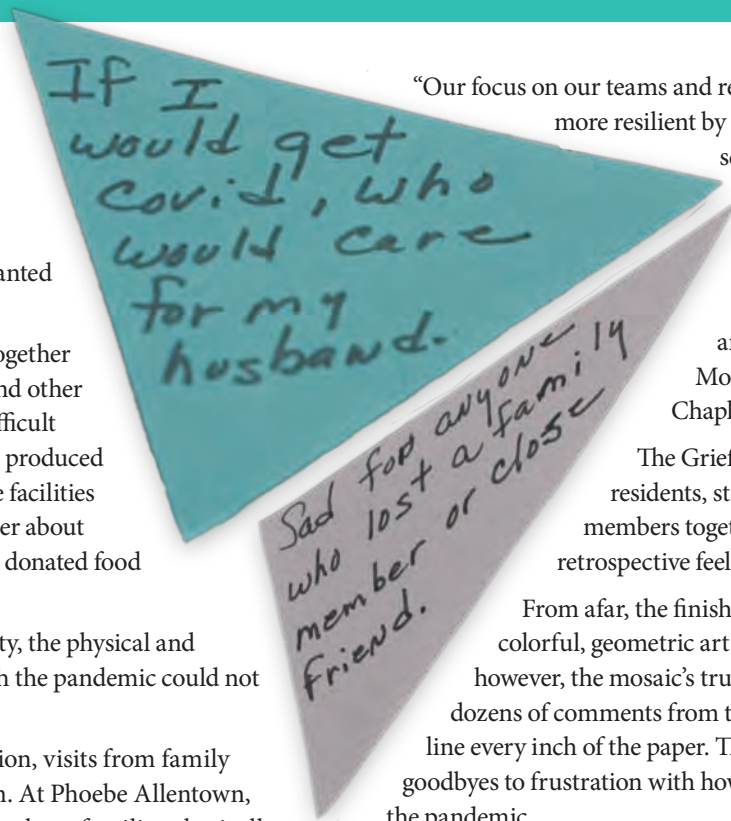 If I
would get
covid, who
would care
for my
husband.
Sad for anyone
who lost a family
member or close
friend.
anted
ogether
nd other
fficult
produced
e facilities
er about
donated food
ty, the physical and
h the pandemic could not
ion, visits from family
n. At Phoebe Allentown,
“Our focus on our teams and re
more resilient by
se
an
Mo
Chapl
The Grief
residents, st
members togeth
retrospective feel
From afar, the finish
colorful, geometric art
however, the mosaic’s tru
dozens of comments from t
line every inch of the paper. T
goodbyes to frustration with how
the pandemic